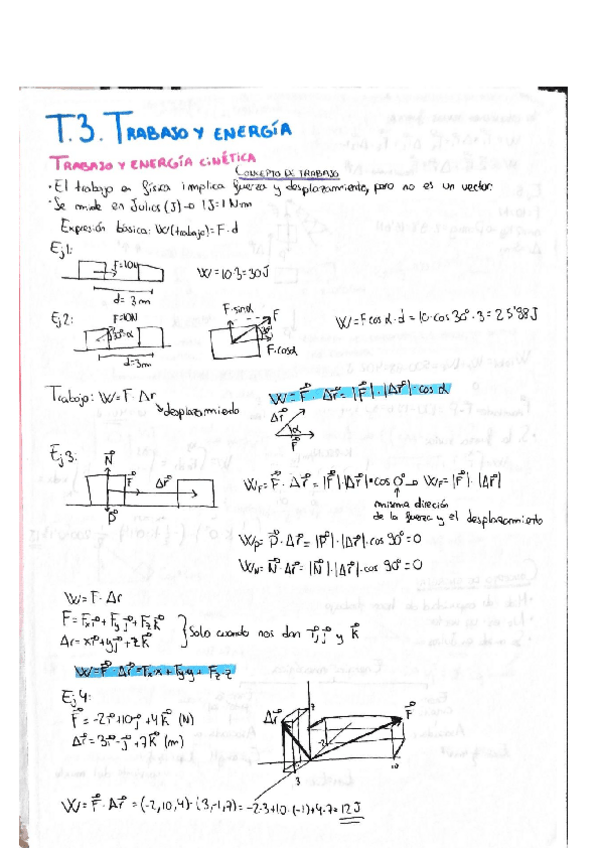 T.3. TRABAJO Y ENERGÍA
TRABAJO Y ENERGÍA CINÉTICA
CONCEPTO DE TRABAJO
· El trabajo en física implica fuerza y desplazamiento, pero no es un vector.
· Se mide en Julios (J) → 1J = 1 N·m
Expresión básica: W (trabajo) = F · d
Ej1:
F=10N
d= 3m
W = 10·3 = 30 J
Ej2:
F=10N
30º=α
d=3m
F·sinα
F
30º
F·cosα
W = F cos α · d = 10 · cos 30º · 3 = 25'98 J
Trabajo: W = F · Δr
desplazamiento
W = F⃗ · Δr⃗ = |F⃗| · |Δr⃗| · cos α
Δr⃗
α
F⃗
Ej3:
N⃗
F⃗
Δr⃗
P⃗
W_F = F⃗ · Δr⃗ = |F⃗| · |Δr⃗| · cos 0º → W_F = |F⃗| · |Δr⃗|
misma direción
de la fuerza y el desplazamiento
W_P = P⃗ · Δr⃗ = |P⃗| · |Δr⃗| · cos 90º = 0
W_N = N⃗ · Δr⃗ = |N⃗| · |Δr⃗| · cos 90º = 0
W = F · Δr
F = F_x i⃗ + F_y j⃗ + F_z k⃗
Δr = x i⃗ + y j⃗ + z k⃗
} Solo cuando nos dan i⃗, j⃗ y k⃗
W = F⃗ · Δr⃗ = F_x·x + F_y·y + F_z·z
Ej4:
F⃗ = -2i⃗ + 10j⃗ + 4k⃗ (N)
Δr⃗ = 3i⃗ - j⃗ + 7k⃗ (m)
Δr⃗
7
F⃗
-2
3
10
W = F⃗ · Δr⃗ = (-2,10,4) · (3,-1,7) = -2·3 + 10·(-1) + 4·7 = 12 J